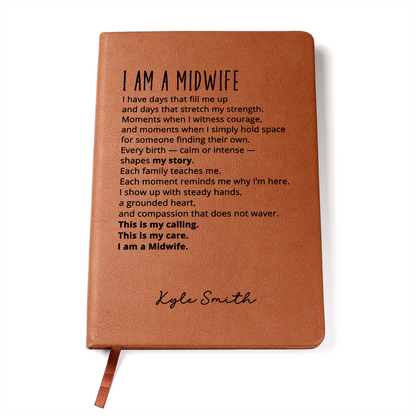 I AM A MIDWIFE
I have days that fill me up
and days that stretch my strength.
Moments when I witness courage,
and moments when I simply hold space
for someone finding their own.
Every birth — calm or intense —
shapes my story.
Each family teaches me.
Each moment reminds me why I'm here.
I show up with steady hands,
a grounded heart,
and compassion that does not waver.
This is my calling.
This is my care.
I am a Midwife.
Kyle Smith